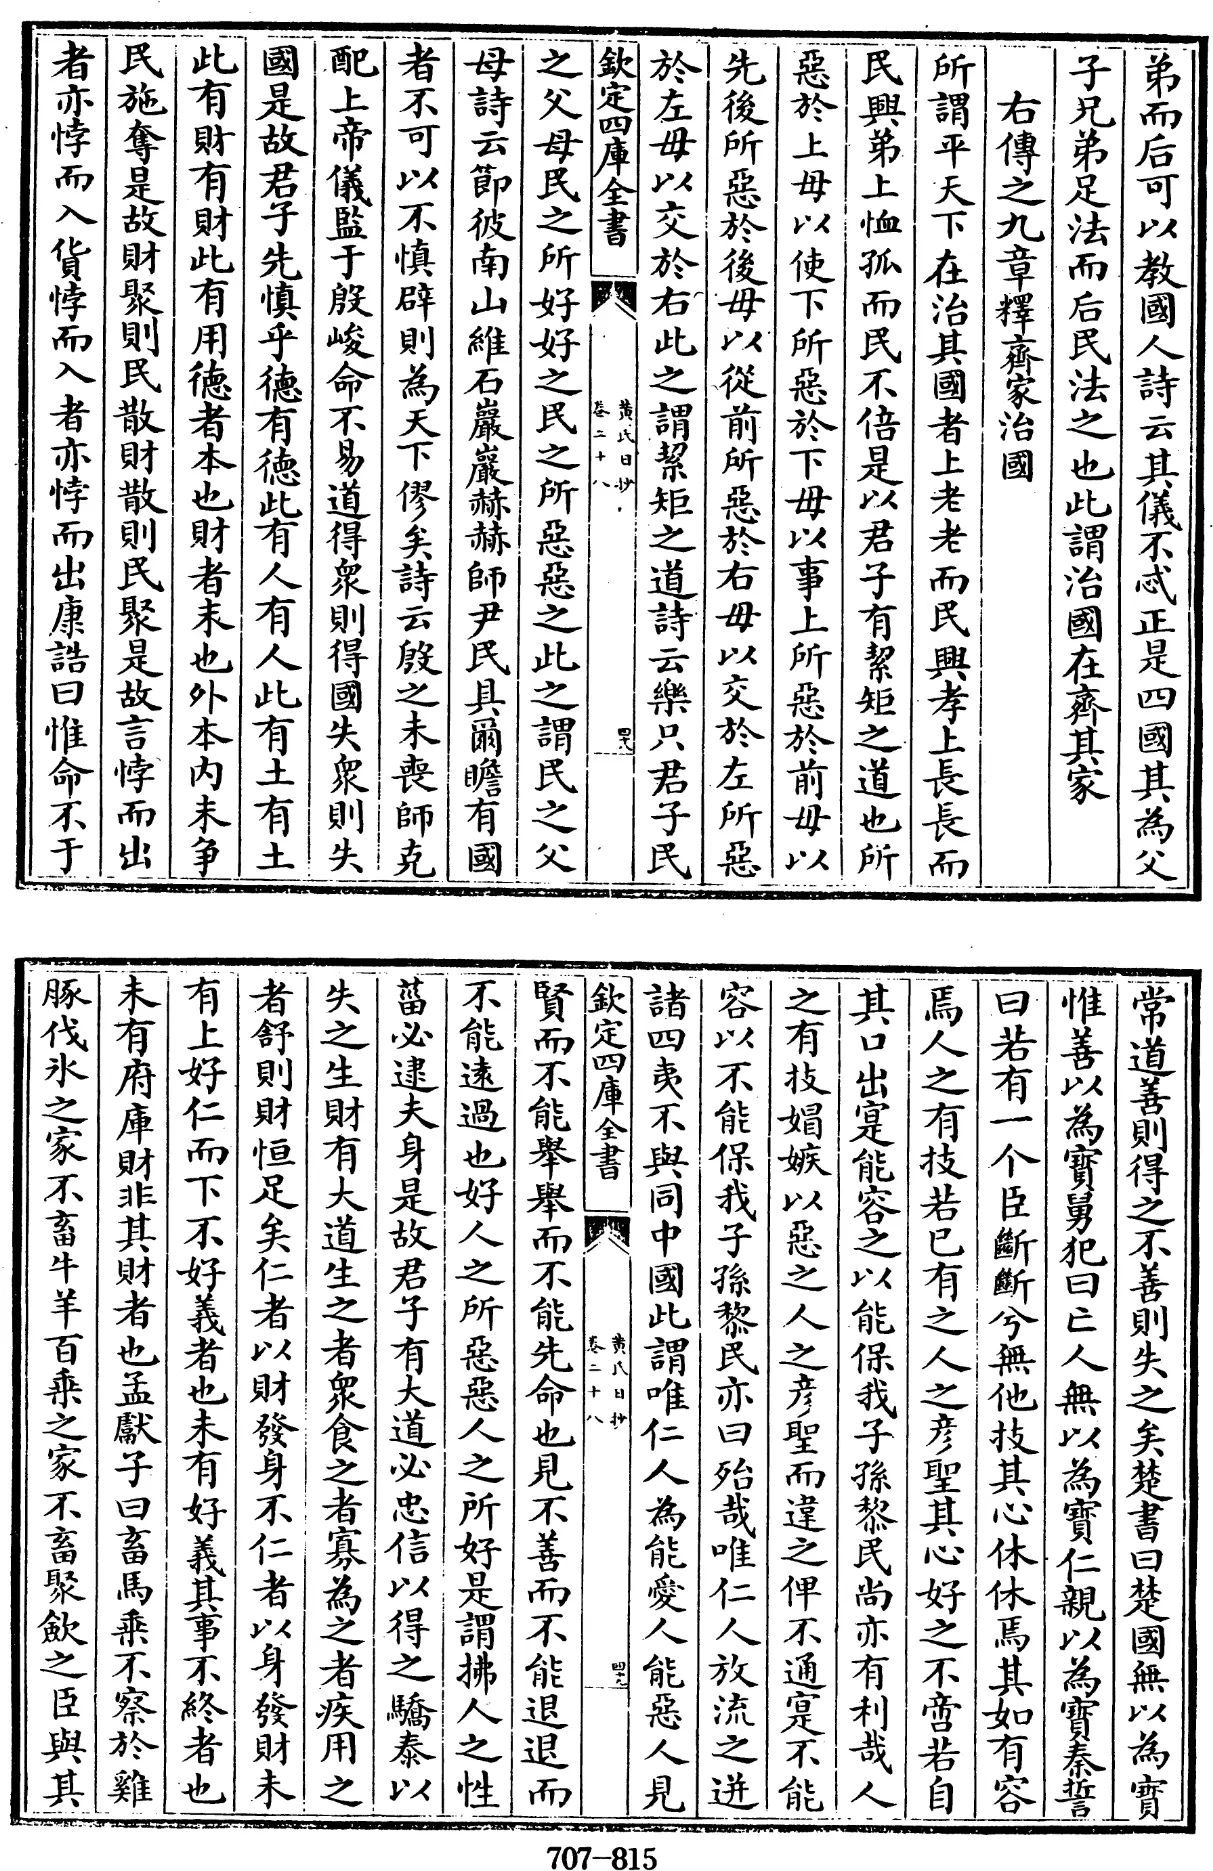 弟而后可以教國人詩云其儀不忒正是四國其為父
子兄弟足法而后民法之也此謂治國在齊其家
右傳之九章釋齊家治國
所謂平天下在治其國者上老老而民興孝上長長而
民興弟上恤孤而民不倍是以君子有絜矩之道也所
惡於上毋以使下所惡於下毋以事上所惡於前毋以
先後所惡於後毋以從前所惡於右毋以交於左所惡
於左毋以交於右此之謂絜矩之道詩云樂只君子民
欽定四庫全書
黄氏日抄
卷二十八
四八
之父母民之所好好之民之所惡惡之此之謂民之父
母詩云節彼南山維石巖巖赫赫師尹民具爾瞻有國
者不可以不慎辟則為天下僇矣詩云殷之未喪師克
配上帝儀監于殷峻命不易道得衆則得國失衆則失
國是故君子先慎乎德有德此有人有人此有土有土
此有財有財此有用德者本也財者末也外本內末爭
民施奪是故財聚則民散財散則民聚是故言悖而出
者亦悖而入貨悖而入者亦悖而出康誥曰惟命不于
常道善則得之不善則失之矣楚書曰楚國無以為寳
惟善以為寳舅犯曰亡人無以為寳仁親以為寳秦誓
曰若有一个臣斷斷兮無他技其心休休焉其如有容
焉人之有技若已有之人之彦聖其心好之不啻若自
其口出寔能容之以能保我子孫黎民尚亦有利哉人
之有技媢嫉以惡之人之彦聖而違之俾不通寔不能
容以不能保我子孫黎民亦曰殆哉唯仁人放流之迸
諸四夷不與同中國此謂唯仁人為能愛人能惡人見
欽定四庫全書
黄氏日抄
卷二十八
四九
賢而不能舉舉而不能先命也見不善而不能退退而
不能逺過也好人之所惡惡人之所好是謂拂人之性
菑必逮夫身是故君子有大道必忠信以得之驕泰以
失之生財有大道生之者衆食之者寡為之者疾用之
者舒則財恒足矣仁者以財發身不仁者以身發財未
有上好仁而下不好義者也未有好義其事不終者也
未有府庫財非其財者也孟獻子曰畜馬乘不察於雞
豚伐氷之家不畜牛羊百乘之家不畜聚歛之臣與其
707-815